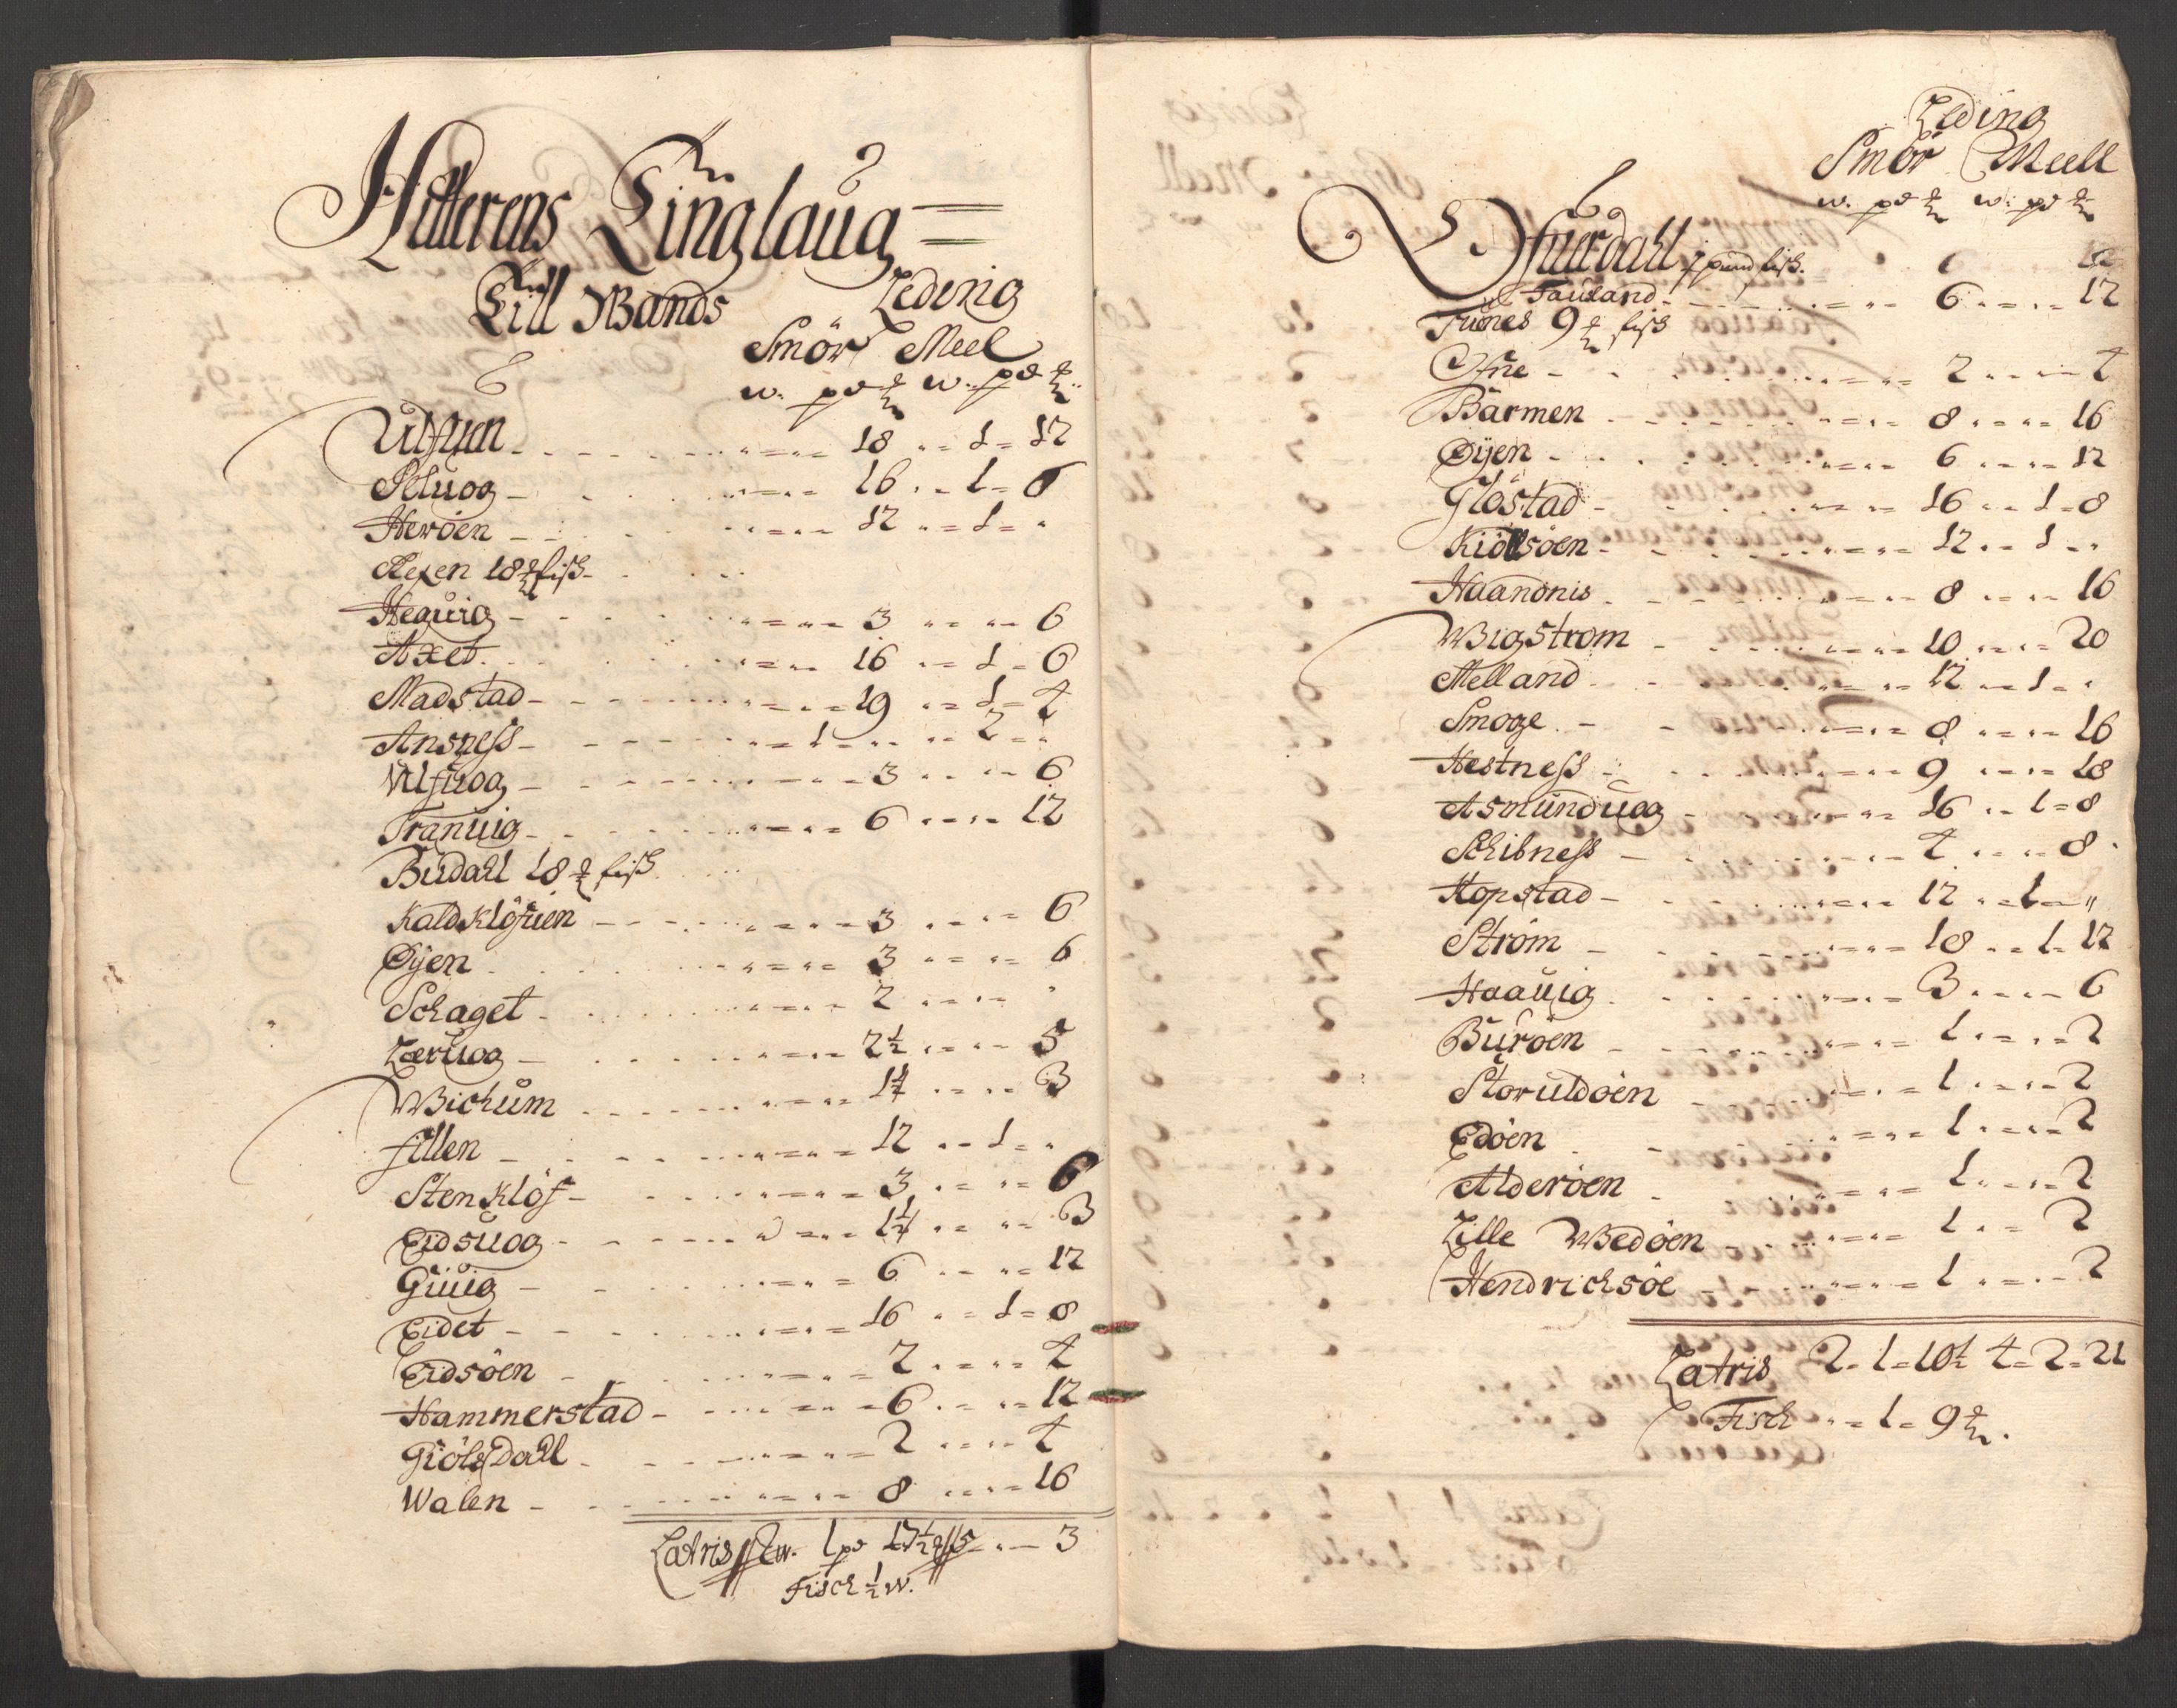 Hitterens Tinglaug
Till Wands Leding
Smör Meel
w. pd ℔ w. pd ℔
Ulfuen 18 1 = 12
Peluog 16 1 = 8
Heröen 12 1 =
Rexen 18 ℔ fisk
Heguig 3 6
Axet 16 1 = 6
Madstad 19 1 = 4
Ansness 1 2
Ulfuog 3 6
Tranuig 6 12
Budall 18 ℔ fisk
Kaldklöfuen 3 6
Öÿen 3 6
Schaget 2
Leruog 2½ 5
Wichum 1½ 3
fillen 12 1 =
Stenklöf 3 6
Eidsuog 1½ 3
Güuig 6 12
Eidet 16 1 = 8
Eidsöen 2 4
Hammerstad 6 12
Giölsdall 2 4
Walen 8 16
Latris 2 w. 1 pd 17½ ℔ 5 3
Fisch ½ w.
Leding
Smör Meell
w. pd ℔ w. pd ℔
Ofuerdall 1 pund fisk.
Fauland 6 12
Tunes 9 ℔ fisk
Ofne 2 4
Barmen 8 16
Öÿen 6 12
Glöstad 16 1 = 8
Kiölsöen 12 1
Haandnis 8 16
Wigstrom 10 20
Melland 12 1
Smoge 8 16
Hestness 9 18
Asmunduog 16 1 = 8
Schibness 4 8
Kopstad 12 1
Ström 18 1 = 12
Haauig 3 6
Buröen 1 2
Storuldöen 1 2
Edöen 1 2
Alderöen 1 2
Lille Wedöen 1 2
Hendrichsöe 1 2
Latris 2 = 1 = 10½ 4 = 2 = 21
Fisch 1 = 9 ℔.